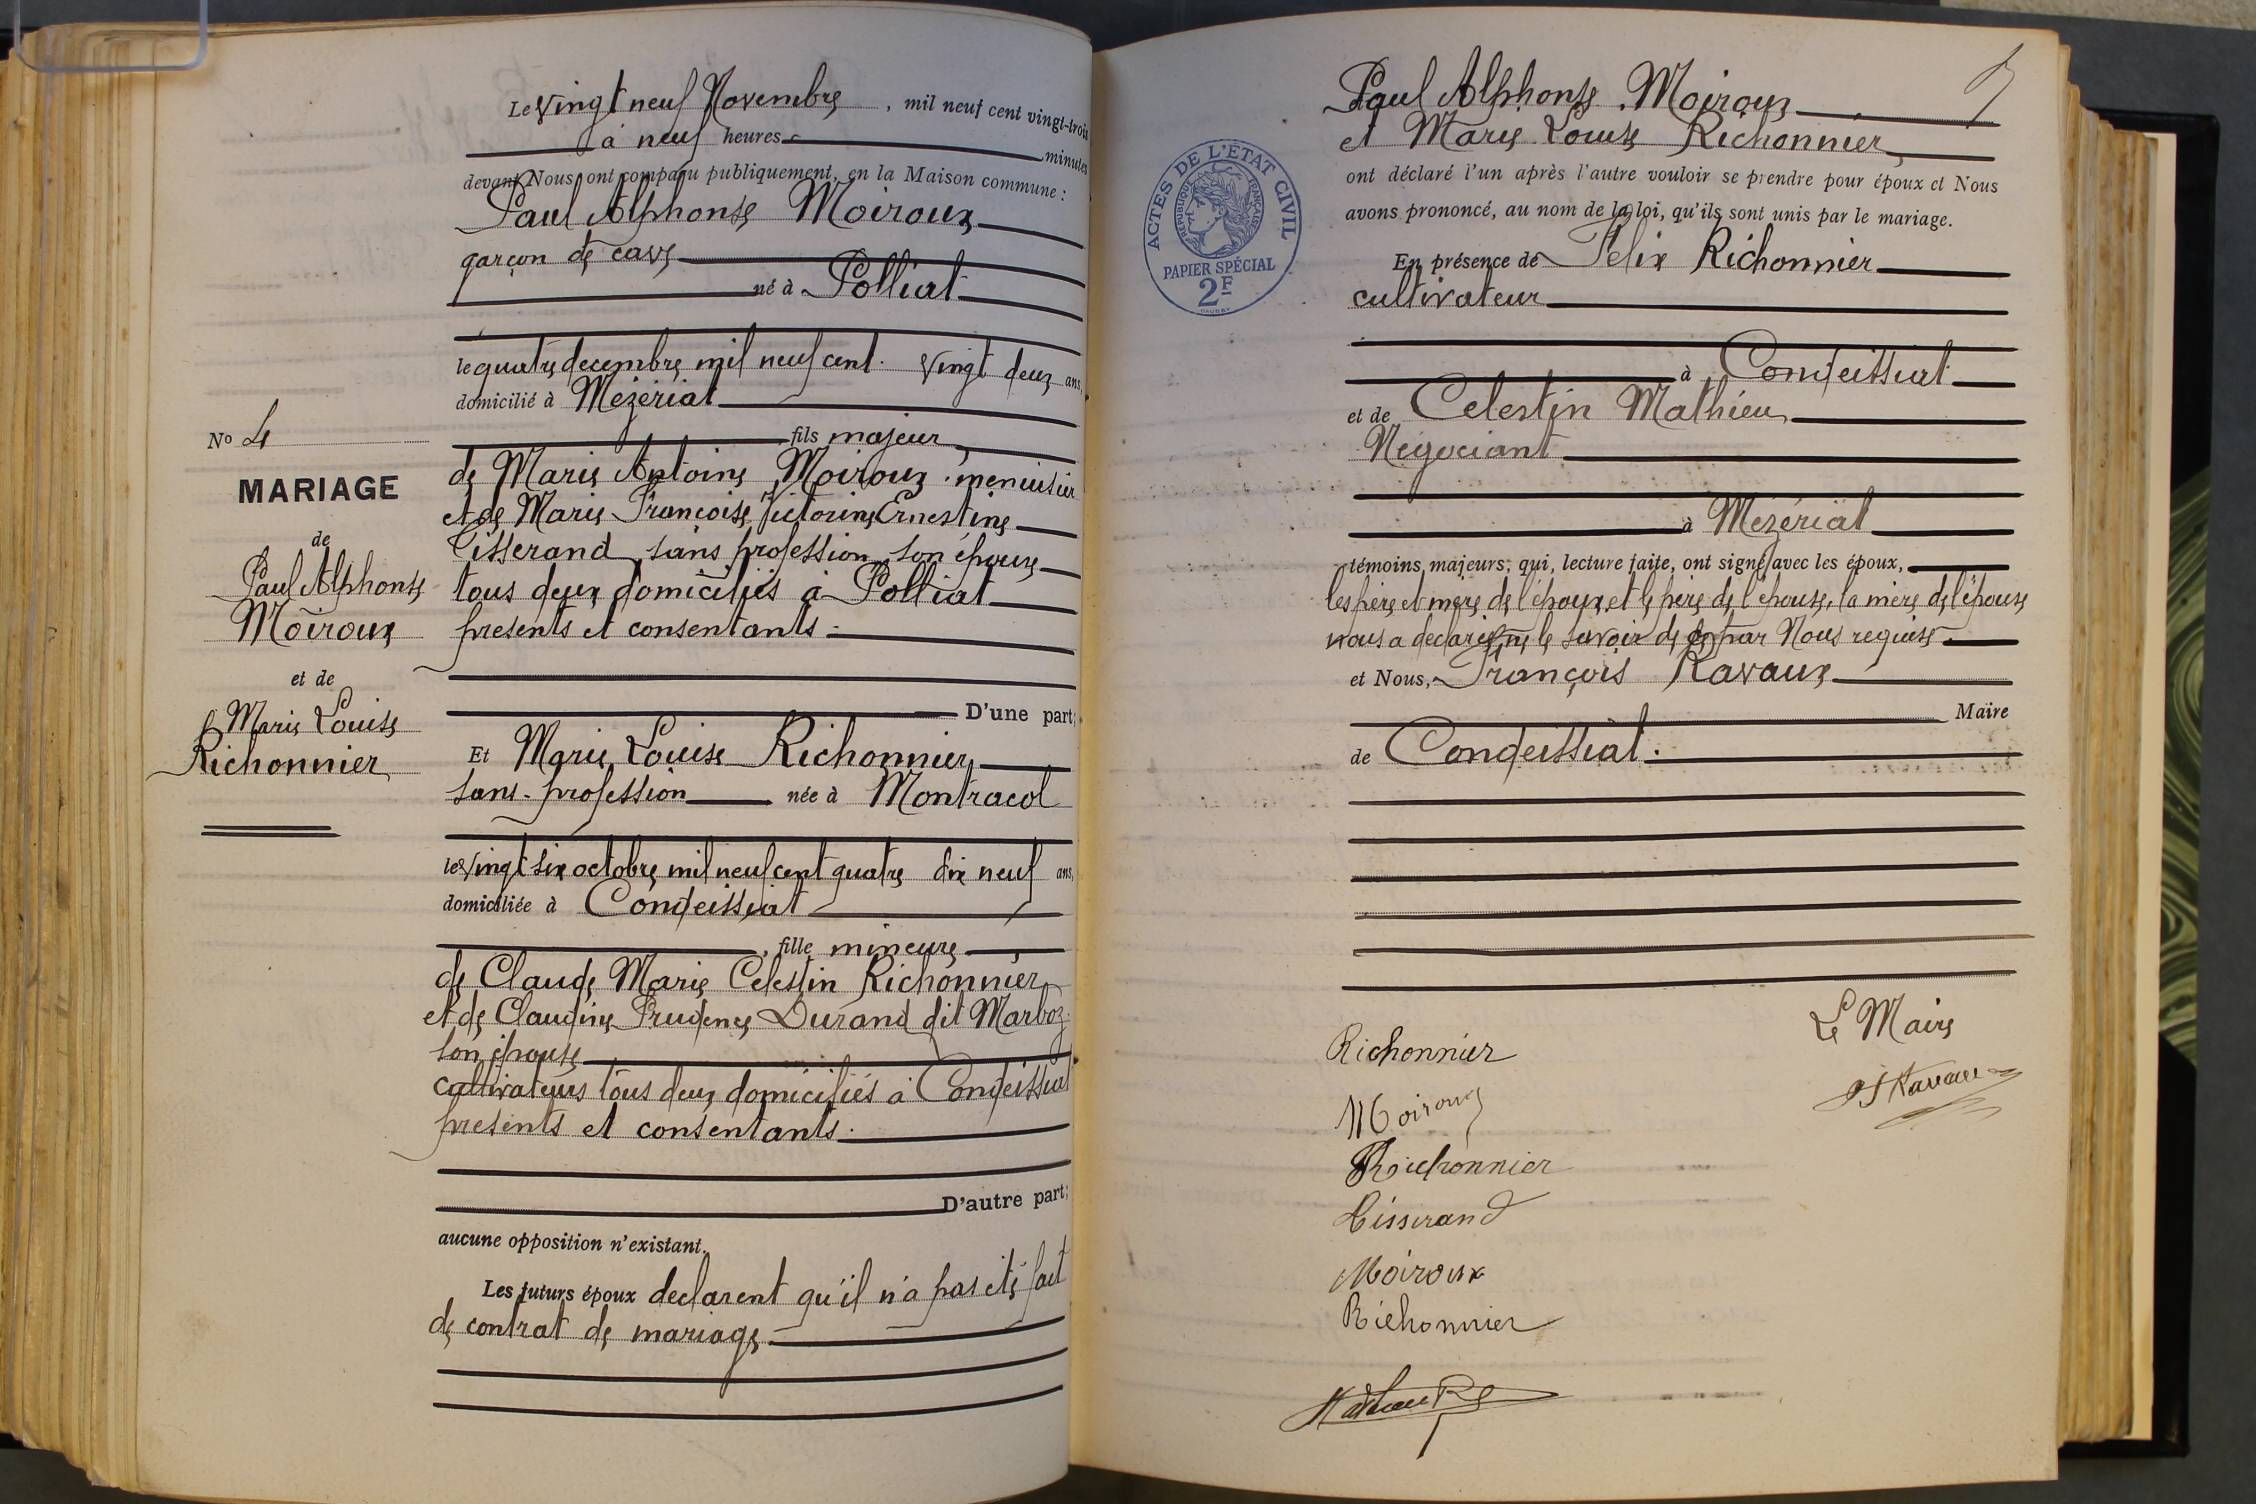 Le vingt neuf Novembre, mil neuf cent vingt-trois
à neuf heures minutes
devant Nous ont comparu publiquement, en la Maison commune :
Paul Alphonse Moiroux
garçon de cave
né à Polliat
le quatre decembre mil neuf cent. vingt deux ans,
domicilié à Mézériat
fils majeur
de Marie Antoine Moiroux menuisier
et de Marie Françoise Victorine Ernestine
Tisserand sans profession son épouse
tous deux domiciliés à Polliat
presents et consentants
D'une part;
Et Marie Louise Richonnier
sans profession née à Montracol
le vingt six octobre mil neuf cent quatre dix neuf ans,
domiciliée à Condeissiat
fille mineure
de Claude Marie Celestin Richonnier
et de Claudine Prudence Durand dit Marboz
son épouse
cultivateurs tous deux domiciliés à Condeissiat
presents et consentants.
D'autre part;
aucune opposition n'existant.
Les futurs époux declarent qu'il n'a pas été fait
de contrat de mariage
No 4
MARIAGE
de
Paul Alphonse
Moiroux
et de
Marie Louise
Richonnier
Paul Alphonse Moiroux
et Marie Louise Richonnier
ont déclaré l'un après l'autre vouloir se prendre pour époux et Nous
avons prononcé, au nom de la loi, qu'ils sont unis par le mariage.
En présence de Felix Richonnier
cultivateur
à Condeissiat
et de Celestin Mathieu
Négociant
à Mézériat
témoins, majeurs, qui, lecture faite, ont signé avec les époux,
les père et mère de l'époux et le père de l'épouse, la mère de l'épouse
nous a declaré ne le savoir de par Nous requise.
et Nous, François Ravaux
Maire
de Condeissiat.
ACTES DE L'ÉTAT CIVIL
RÉPUBLIQUE FRANÇAISE
PAPIER SPÉCIAL
2F
Richonnier
Moiroux
Richonnier
Tisserand
Moiroux
Richonnier
Le Maire
Ravaux